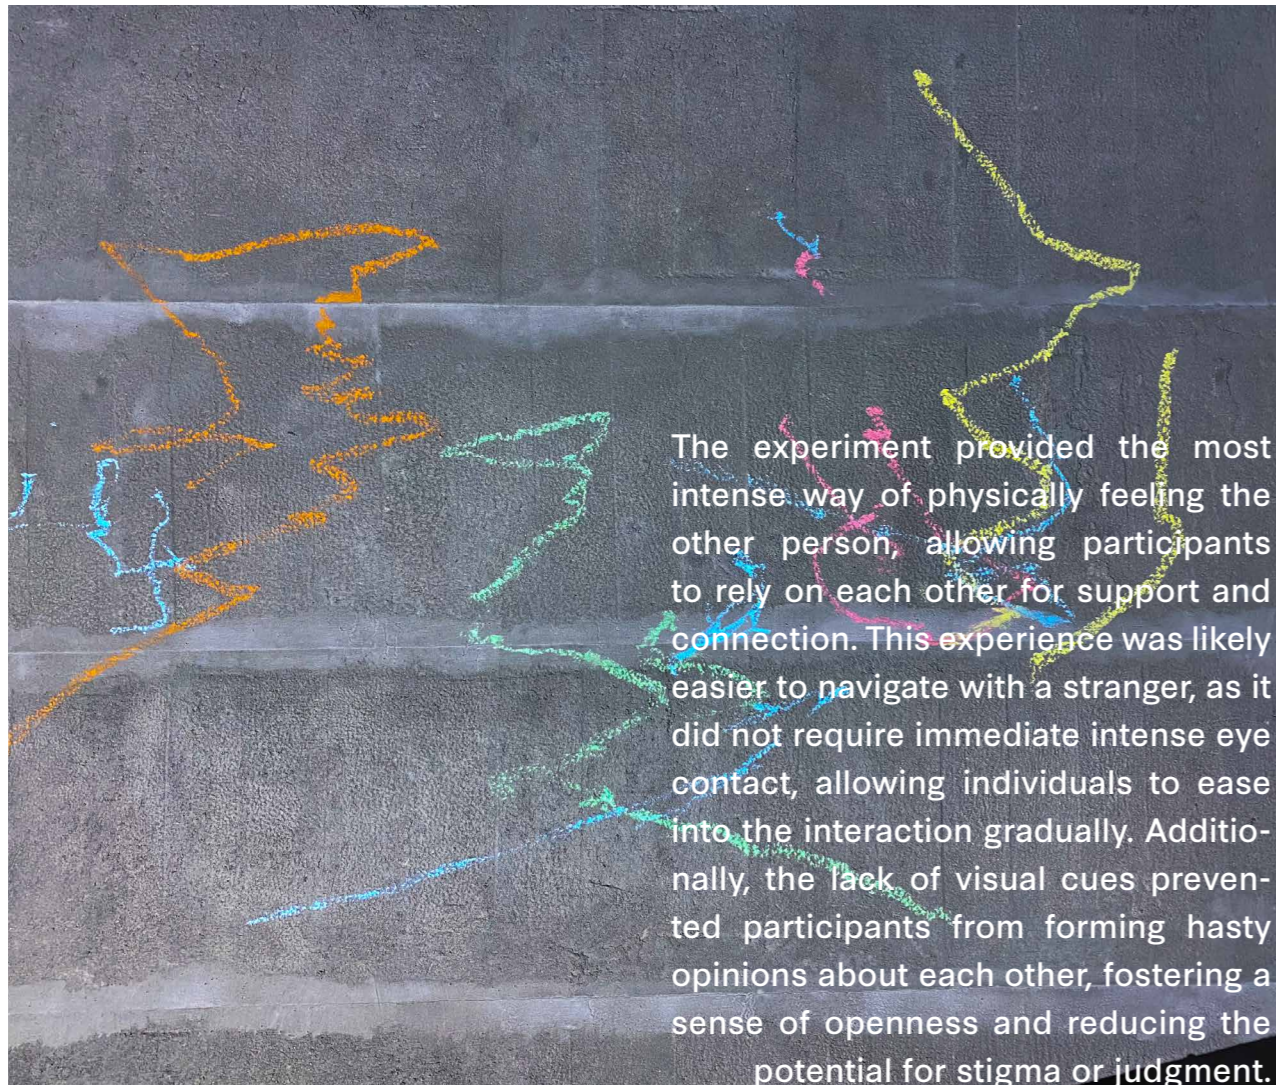 The experiment provided the most
intense way of physically feeling the
other person, allowing participants
to rely on each other for support and
connection. This experience was likely
easier to navigate with a stranger, as it
did not require immediate intense eye
contact, allowing individuals to ease
into the interaction gradually. Additio-
nally, the lack of visual cues preven-
ted participants from forming hasty
opinions about each other, fostering a
sense of openness and reducing the
potential for stigma or judgment.